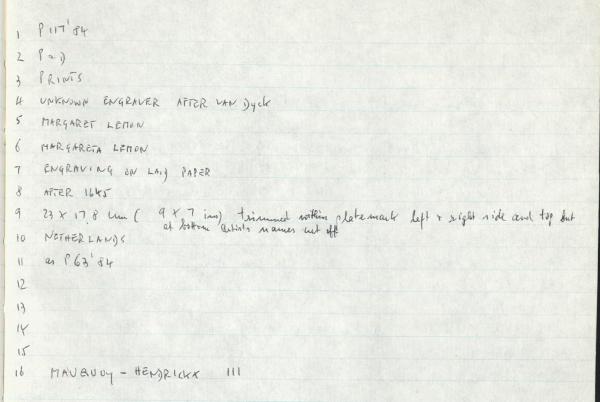 1 P117'84
2 P=)
3 PRINTS
4 UNKNOWN ENGRAVER AFTER VAN Dyck
5 MARGARET LEMON
6 MARGARETA LEMON
7 ENGRAVING ON LAID PAPER
8 AFTER 1645
9 23 X 17,8 cm ( 9 X 7 ins) trimmed within platemark left & right side and top but
at bottom artists names cut off
10 NETHERLANDS
11 as P63'84
12
13
14
15
16 MAUQUOY - HENDRICKX III